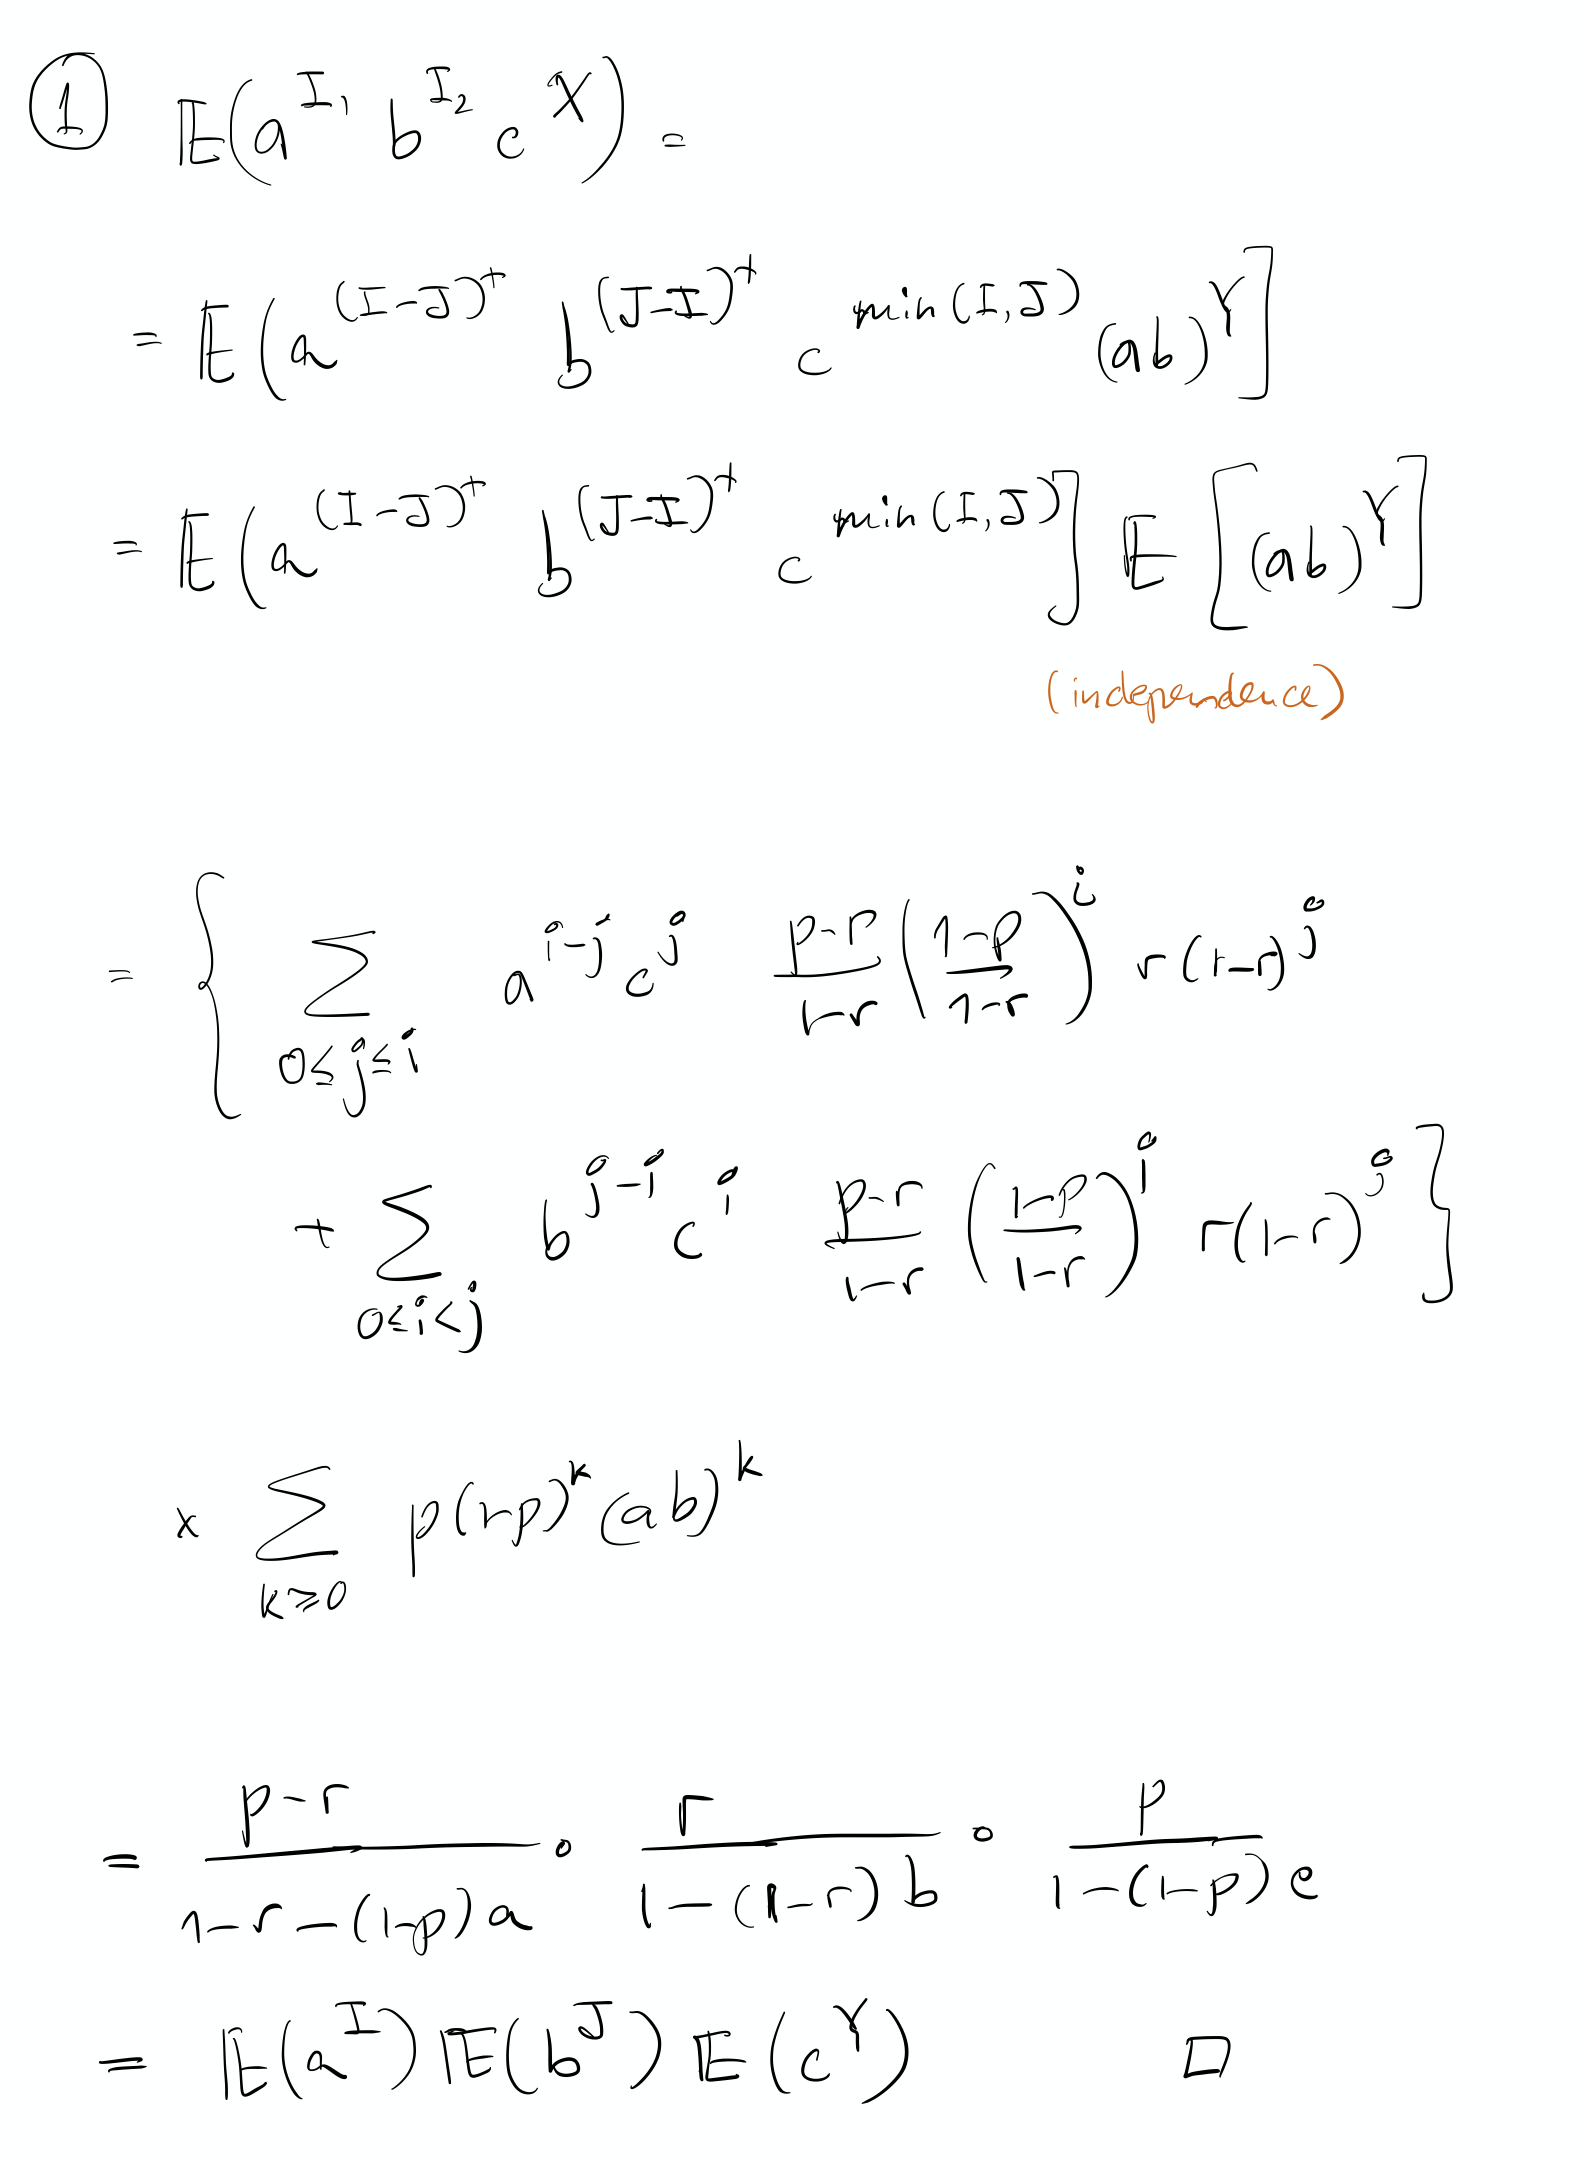 ① 𝔼(a^{I₁} b^{I₂} c^X) =
= 𝔼(a^{(I-J)⁺} b^{(J-I)⁺} c^{min(I,J)} (ab)^Y]
= 𝔼(a^{(I-J)⁺} b^{(J-I)⁺} c^{min(I,J)}] 𝔼[(ab)^Y]
(independence)
= { ∑_{0≤j≤i} a^{i-j} c^j \frac{p-r}{1-r} (\frac{1-p}{1-r})^i r(1-r)^j
+ ∑_{0≤i<j} b^{j-i} c^i \frac{p-r}{1-r} (\frac{1-p}{1-r})^i r(1-r)^j }
x ∑_{k≥0} p(1-p)^k (ab)^k
= \frac{p-r}{1-r-(1-p)a} · \frac{r}{1-(1-r)b} · \frac{p}{1-(1-p)c}
= 𝔼(a^I) 𝔼(b^J) 𝔼(c^Y) □